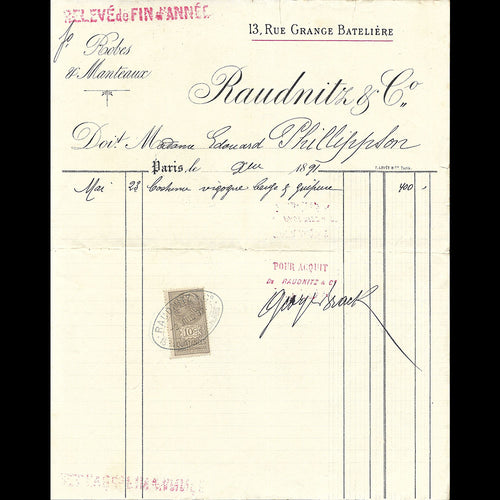 RELEVÉ de FIN d'ANNÉE
13, RUE GRANGE BATELIÈRE
fo
Robes
& Manteaux
Raudnitz & Co.
Doit Madame Edouard Phillippson
Paris, le Xbre 1891
Mai 23 Costume vigogne beige & guipure 400
POUR ACQUIT
RAUDNITZ & Co
RAUDNITZ & Co
10c